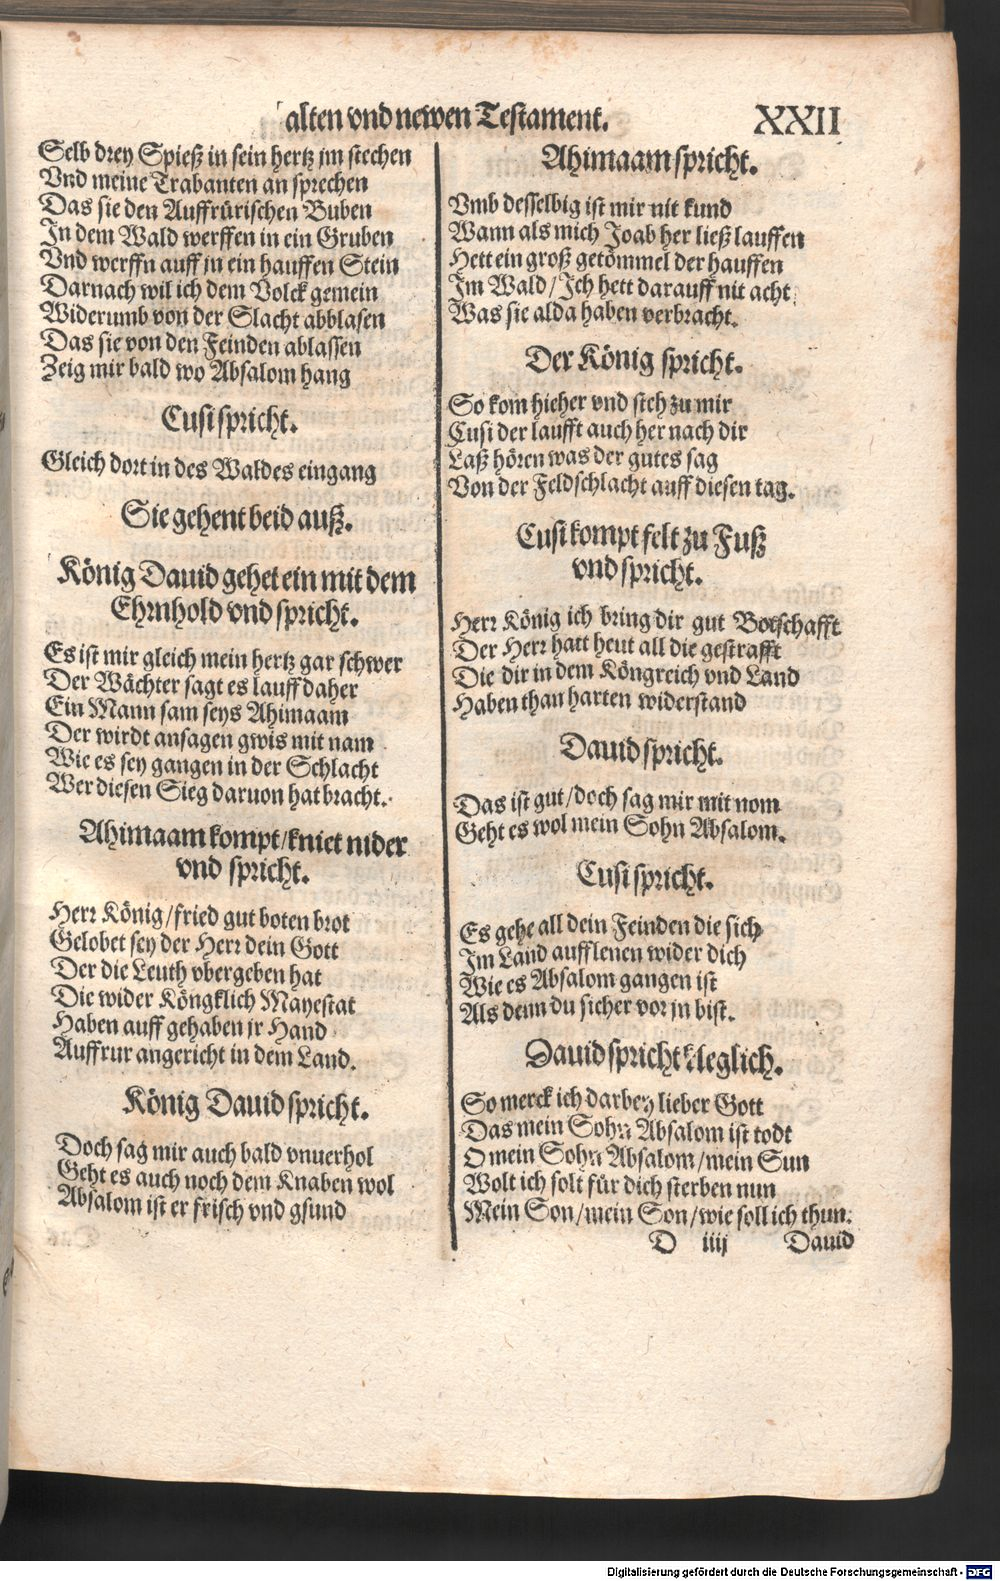 alten vnd newen Testament. XXII
Selb drey Spieß in sein hertz jm stechen
Vnd meine Trabanten an sprechen
Das sie den Auffrürischen Buben
In dem Wald werffen in ein Gruben
Vnd werffn auff jn ein hauffen Stein
Darnach wil ich dem Volck gemein
Widerumb von der Slacht abblasen
Das sie von den Feinden ablassen
Zeig mir bald wo Absalom hang
Cusi spricht.
Gleich dort in des Waldes eingang
Sie gehent beid auß.
König Dauid gehet ein mit dem
Ehrnhold vnd spricht.
Es ist mir gleich mein hertz gar schwer
Der Wächter sagt es lauff daher
Ein Mann sam seys Ahimaam
Der wirdt ansagen gwis mit nam
Wie es sey gangen in der Schlacht
Wer diesen Sieg daruon hat bracht.
Ahimaam kompt/kniet nider
vnd spricht.
Herr König/fried gut boten brot
Gelobet sey der Herr dein Gott
Der die Leuth vbergeben hat
Die wider Köngklich Mayestat
Haben auff gehaben jr Hand
Auffrur angericht in dem Land.
König Dauid spricht.
Doch sag mir auch bald vnuerhol
Geht es auch noch dem Knaben wol
Absalom ist er frisch vnd gsund
Ahimaam spricht.
Vmb desselbig ist mir nit kund
Wann als mich Joab her ließ lauffen
Hett ein groß getömmel der hauffen
Im Wald/Ich hett darauff nit acht
Was sie alda haben verbracht.
Der König spricht.
So kom hieher vnd steh zu mir
Cusi der laufft auch her nach dir
Laß hören was der gutes sag
Von der Feldschlacht auff diesen tag.
Cusi kompt felt zu Fuß
vnd spricht.
Herr König ich bring dir gut Botschafft
Der Herr hatt heut all die gestrafft
Die dir in dem Köngreich vnd Land
Haben than harten widerstand
Dauid spricht.
Das ist gut/doch sag mir mit nom
Geht es wol mein Sohn Absalom.
Cusi spricht.
Es gehe all dein Feinden die sich
Im Land aufflenen wider dich
Wie es Absalom gangen ist
Als denn du sicher vor jn bist.
Dauid spricht kleglich.
So merck ich darbey lieber Gott
Das mein Sohn Absalom ist todt
O mein Sohn Absalom/mein Sun
Wolt ich solt für dich sterben nun
Mein Son/mein Son/wie soll ich thun.
D iiij Dauid
Digitalisierung gefördert durch die Deutsche Forschungsgemeinschaft - DFG